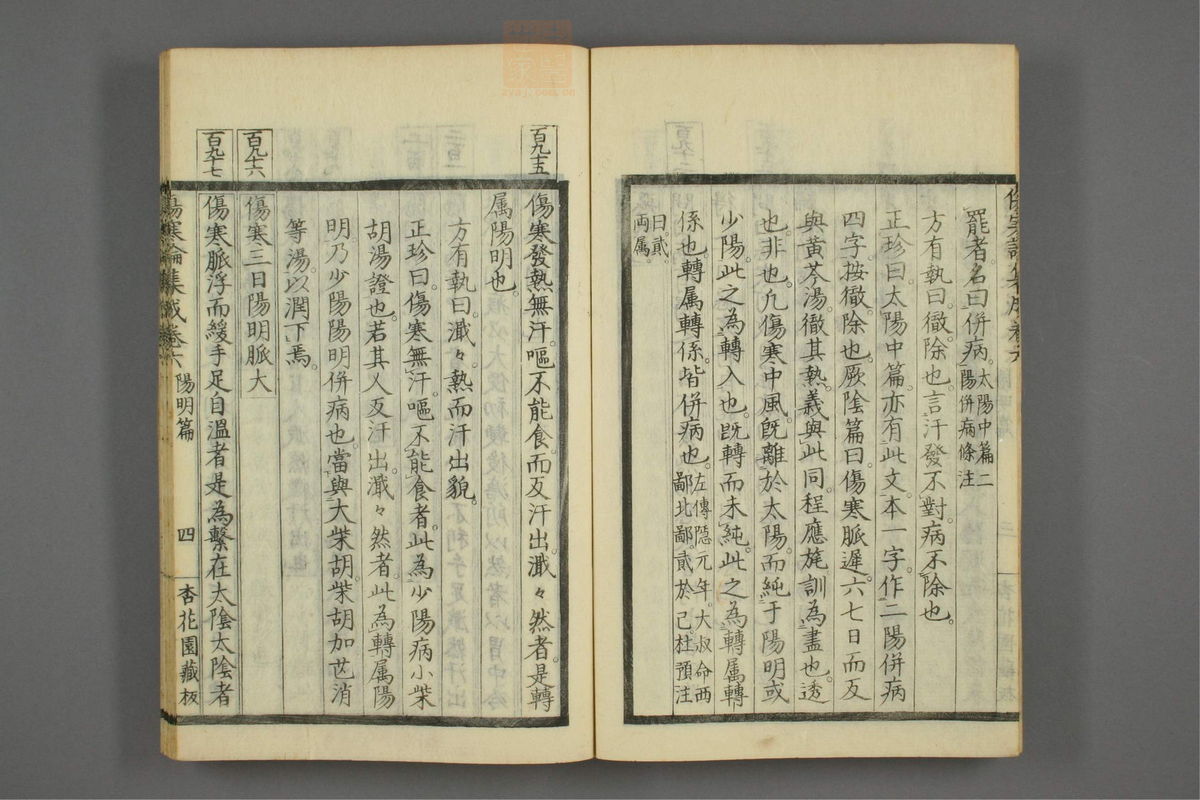 罷者名曰併病太陽中篇二
陽併病條注
方有執曰徹除也言汗發不對病不除也
正珍曰太陽中篇亦有此文本一字作二陽併病
四字按徹除也厥陰篇曰傷寒脈遲六七日而反
與黃芩湯徹其熱義與此同程應旄訓為盡也透
也非也凡傷寒中風既離於太陽而純于陽明或
少陽此之為轉入也既轉而未純此之為轉属轉
係也轉属轉係皆併病也左傳隱元年大叔命西
鄙北鄙貳於己杜預注
曰貳
両属
百九十五
傷寒發熱無汗嘔不能食而反汗出濈々然者是轉
属陽明也
方有執曰濈々熱而汗出貌
正珍曰傷寒無汗嘔不能食者此為少陽病小柴
胡湯證也若其人反汗出濈々然者此為轉属陽
明乃少陽陽明併病也當與大柴胡柴胡加芒消
等湯以潤下焉
百九十六
傷寒三日陽明脈大
百九十七
傷寒脈浮而緩手足自溫者是為繫在太陰太陰者
傷寒論集成卷六 陽明篇 四 杏花園藏板